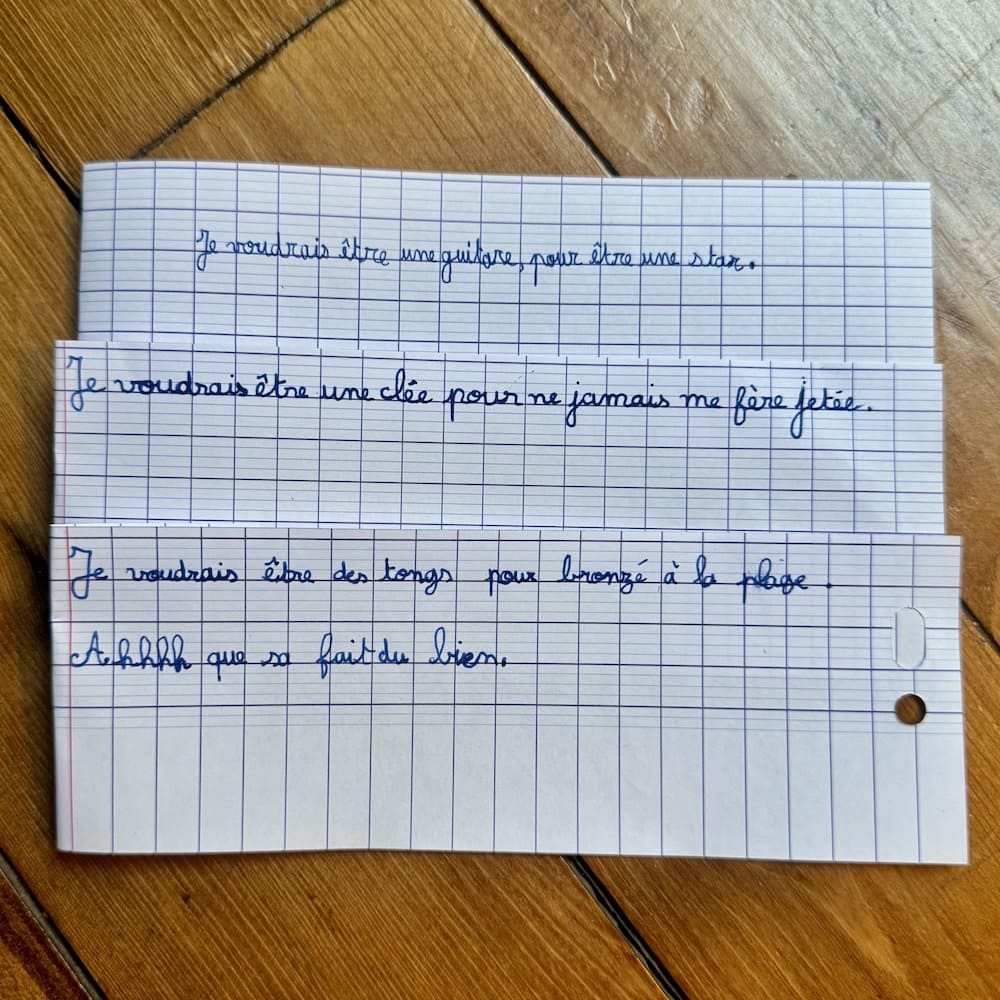 Je voudrais être une guitare, pour être une star.
Je voudrais être une clée pour ne jamais me fère jetée.
Je voudrais être des tongs pour bronzé à la plage.
Ahhhh que sa fait du bien.